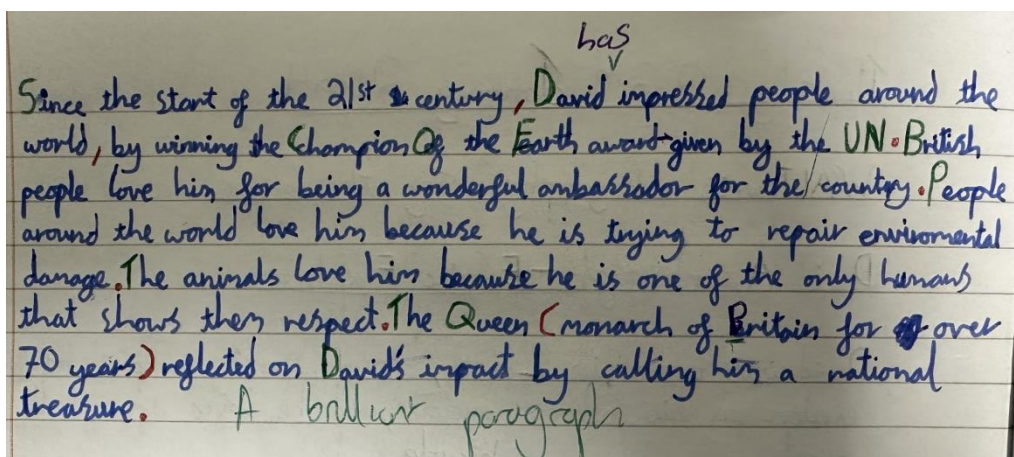 has
Since the start of the 21st century, David impressed people around the
world, by winning the Champion Of the Earth award given by the UN. British
people love him for being a wonderful ambassador for the country. People
around the world love him because he is trying to repair enviromental
damage. The animals love him because he is one of the only humans
that shows them respect. The Queen (monarch of Britain for over
70 years) reflected on David's impact by calling him a national
treasure. A brilliant paragraph